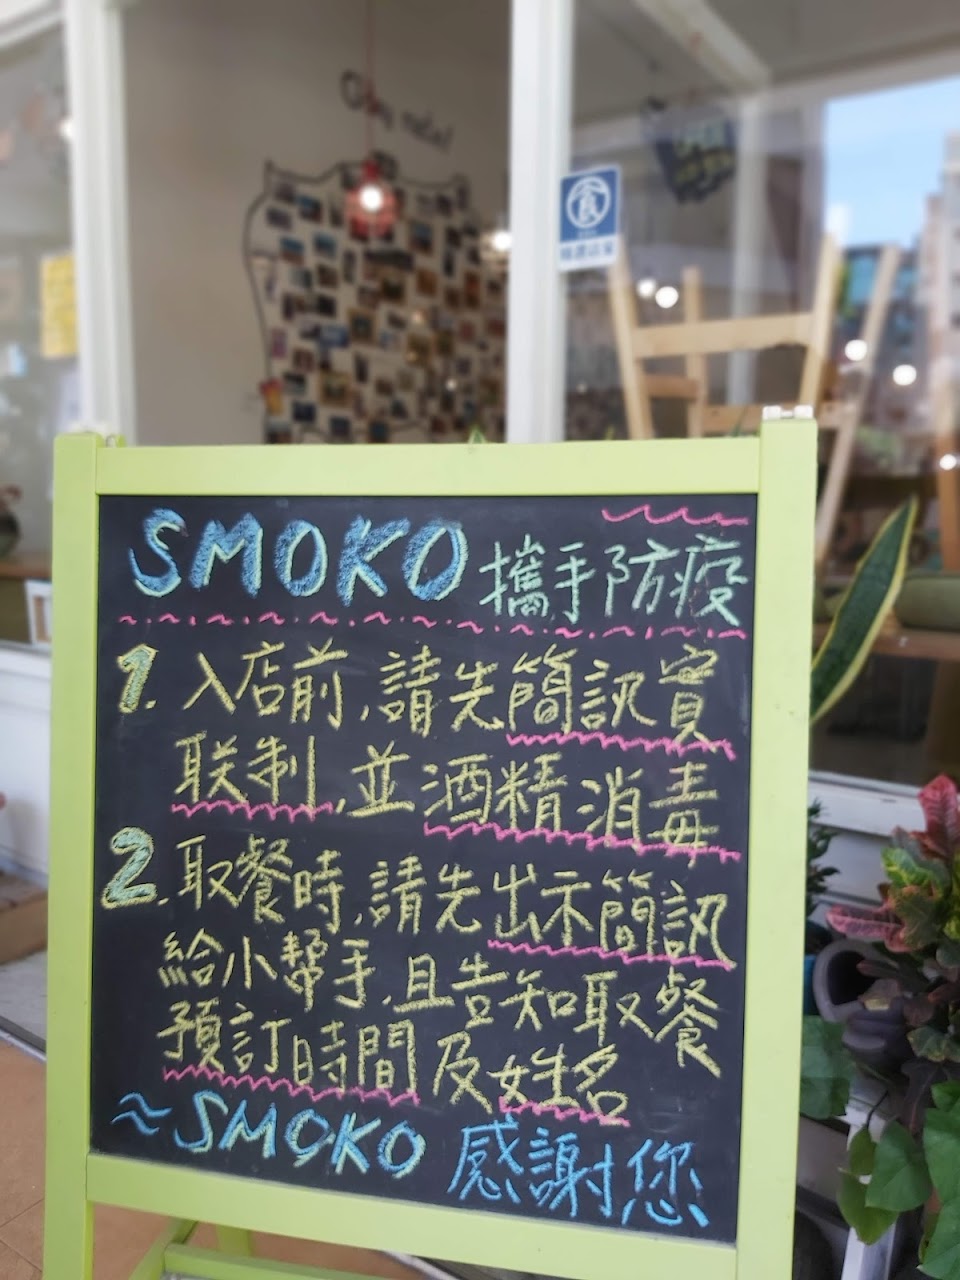 G'day mate!
食
SMOKO 攜手防疫
1. 入店前,請先簡訊實
联制,並酒精消毒
2. 取餐時,請先出示簡訊
給小幫手,且告知取餐
預訂時間及姓名
~SMOKO 感謝您